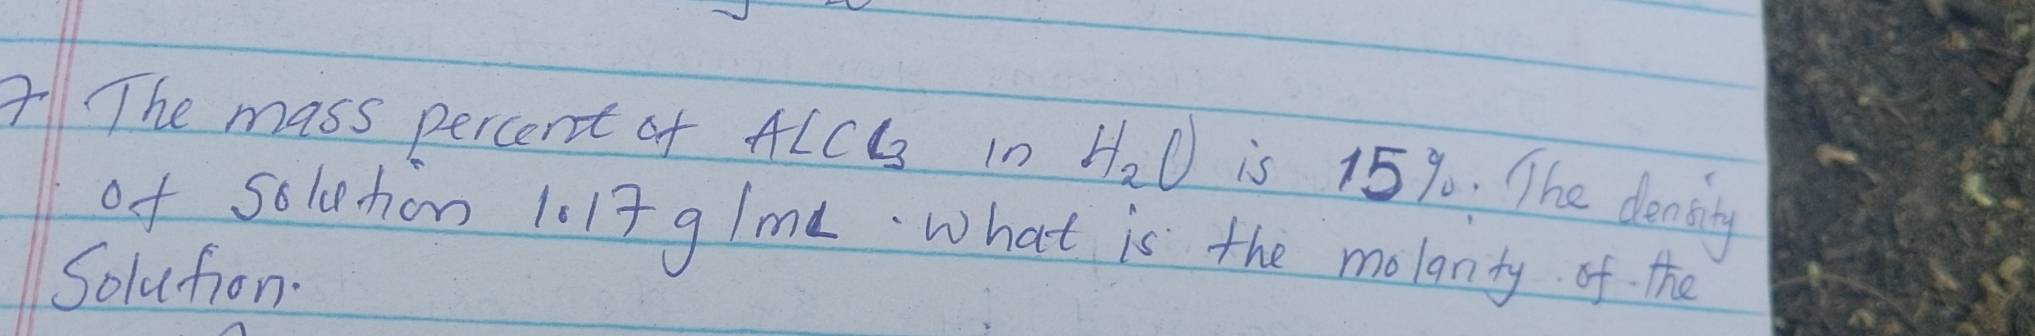 7 The mass percent of AlCl3 in H2O is 15%. The density
of solution 1.17 g/mL. what is the molarity of the
Solution.